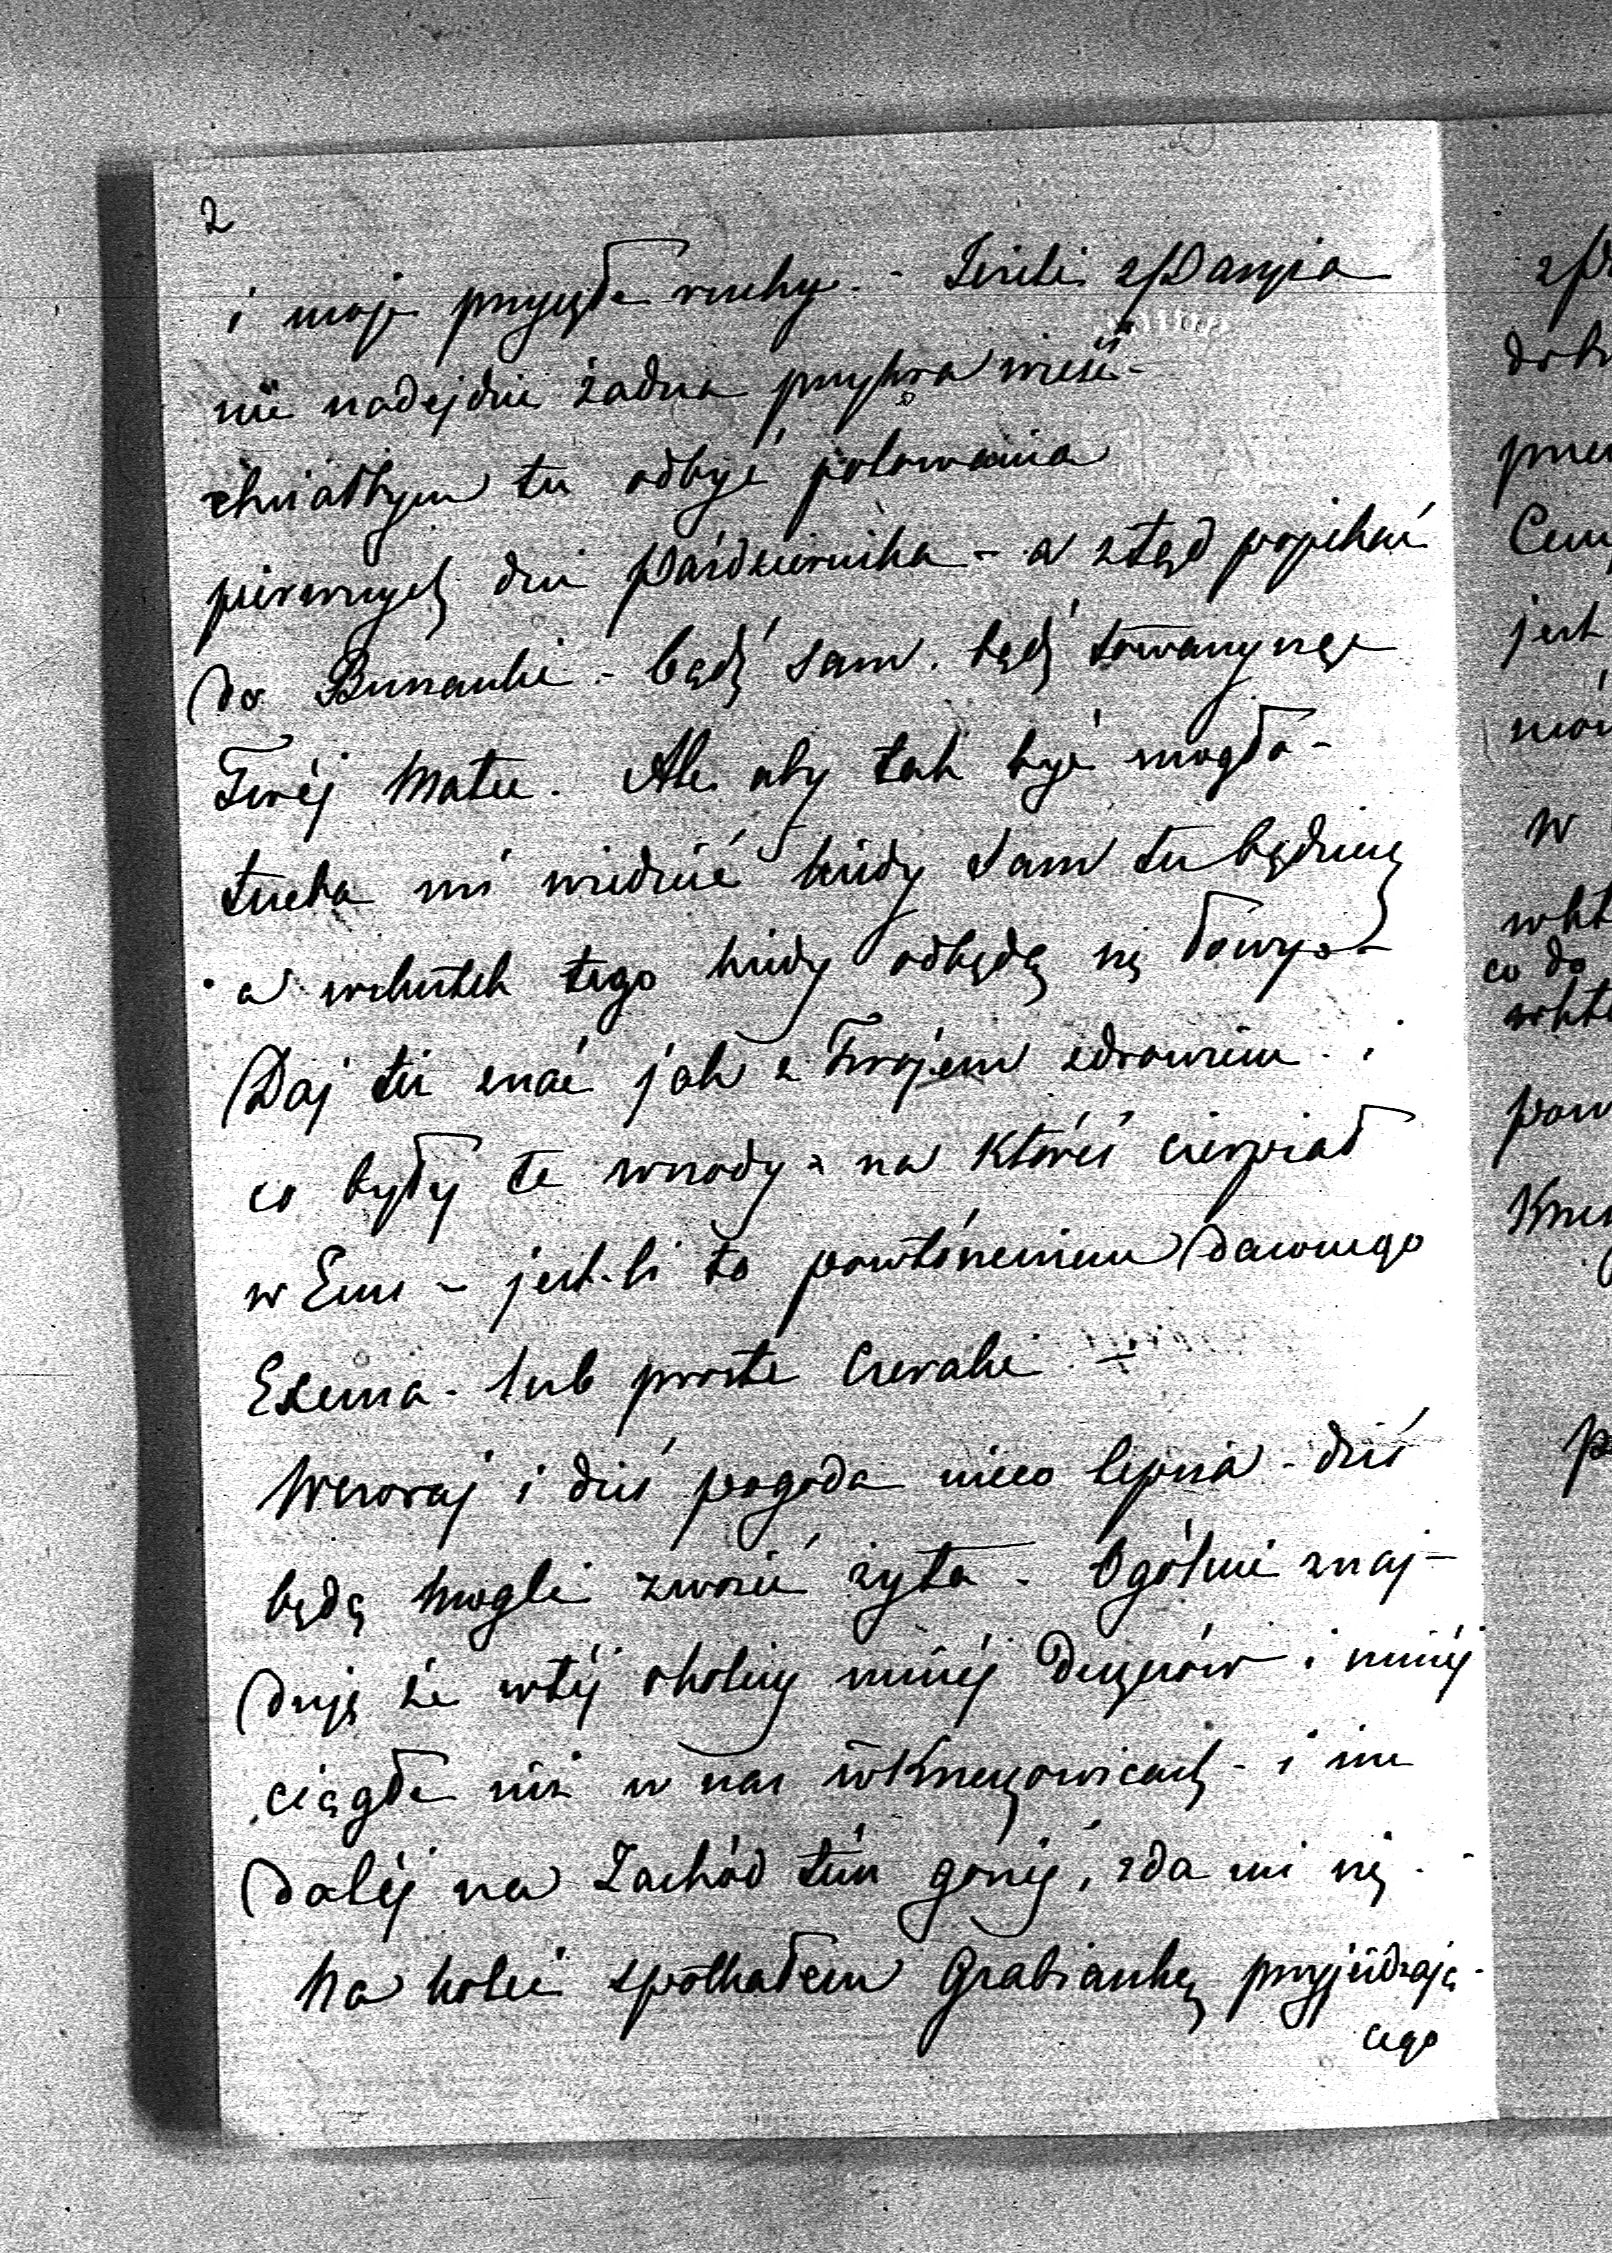 2
i moje przyszłe ruchy. - Jeżeli z Paryża
nie nadejdzie żadna przykra wieść -
chciałbym tu odbyć polowania
pierwszych dni Października - a ztąd pojechać
do Buzanki - bądź sam. bądź towarzysząc
Twéj Matce. Ale aby tak być mogło -
trzeba mi wiedzieć kiedy Sam tu będziesz
a wskutek tego kiedy odbędą się Łowy. -
Daj też znać jak z Twojem zdrowiem i
co były te wrzody - na któreś cierpiał
w Ems - jest-li to powtórzeniem dawnego
Exema - lub proste Czeraki -
Wczoraj i dziś pogoda nieco lepsza - dziś
będą mogli zwozić żyta - Ogólnie znaj-
duję że w téj okolicy mniéj deszczów i mniéj
ciągłe niż u nas w Krzeszowicach - i im
daléj na Zachód tém gorzéj, zda mi się -
Na kolei spotkałem Grabiankę przyjeżdzają-
cego
z P
co do
jest
w